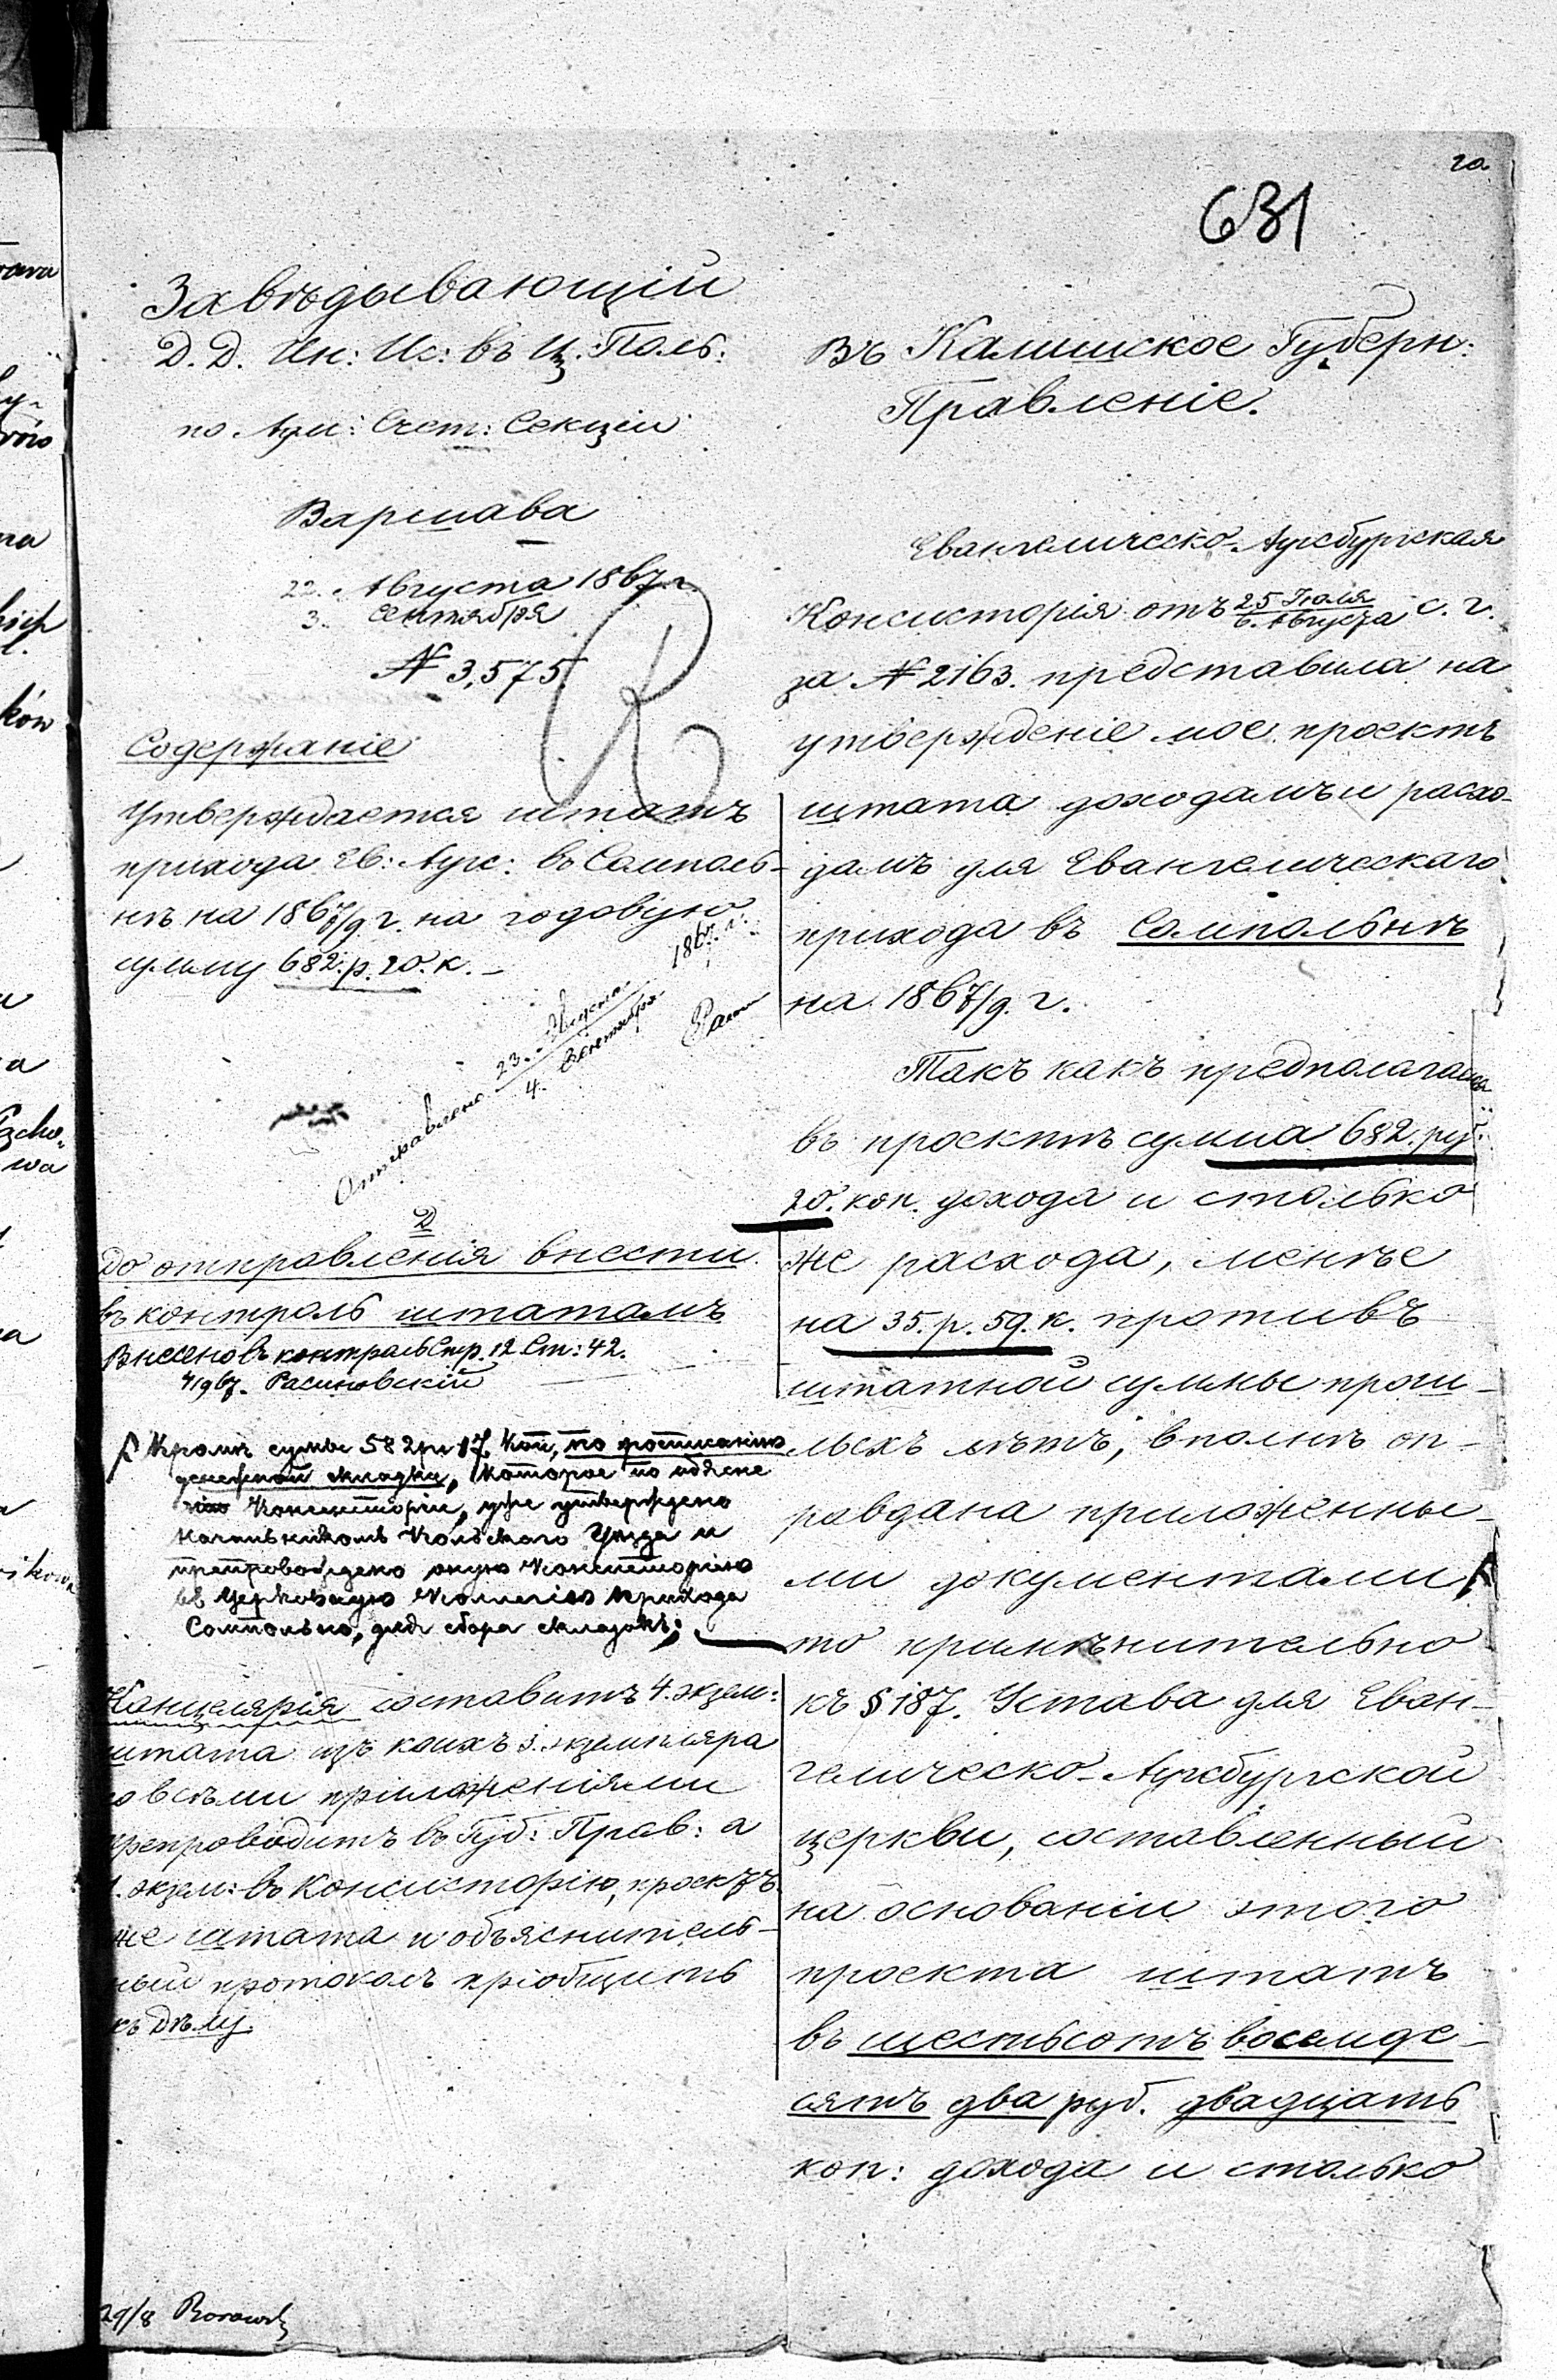 20.
631
Завѣдывающій
Д. Д. Ин: Ис: въ Ц. Поль:
по Адм: Счет: Секціи
Варшава
22. Августа 1867 г.
3. Сентября
№ 3,575
Содержаніе
Утверждается штатъ
прихода Ев: Аугс: въ Сомполь-
нѣ на 1867/9 г. на годовую
сумму 682. р. 20. к. –
Отправлено 23. Августа 1867. г.
4. Сентября
D
До отправленія внести
въ контроль штатамъ
Внесено въ контроль Стр. 12 Ст: 42.
4/9 67.
Кромѣ сумы 582 ру 17 Коп, по росписанію
денежной складки, которое по объясне
нію Консисторіи, уже утверждено
Начальникомъ Кольскаго Уѣзда и
препровождено оною Консисторіею
въ Церковную Коллегію прихода
Сомпольно, для сбора складокъ;
Канцелярія составитъ 4. экзем:
штата изъ коихъ 3. экземпляра
со всѣми приложеніями
препроводитъ въ Губ: Прав: а
1. экзем: въ Консисторію, проектъ
же штата и объяснитель-
ный протоколъ пріобщить
къ дѣлу.
29/8
Въ Калишское Губерн:
Правленіе.
Евангелическо-Аугсбургская
Консисторія отъ 25 Іюля / 6. Августа с. г.
за № 2163. представила на
утвержденіе мое проектъ
штата доходамъ и расхо-
дамъ для Евангелическаго
прихода въ Сомпольнѣ
на 1867/9. г.
Такъ какъ предполагаемая
въ проектѣ сумма 682. руб.
20. коп. дохода и столько
же расхода, менѣе
на 35. р. 59. к. противъ
штатной суммы прош-
лыхъ лѣтъ, вполнѣ оп-
равдана приложенны-
ми документами
то примѣнительно
къ § 187. Устава для Еван-
гелическо-Аугсбургской
церкви, составленный
на основаніи этого
проекта штатъ
въ шестьсотъ восемде-
сятъ два руб. двадцать
коп: дохода и столько